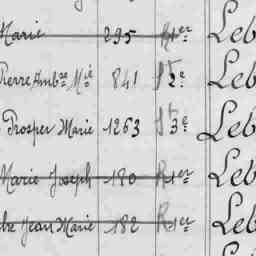 Marie 295 R 1er Leb
Pierre Amb.se M.ie 841 S 2e Leb
Prosper Marie 1263 S 3e Leb
Marie Joseph 180 R 1er Leb
Jean Marie 182 R 1er Leb